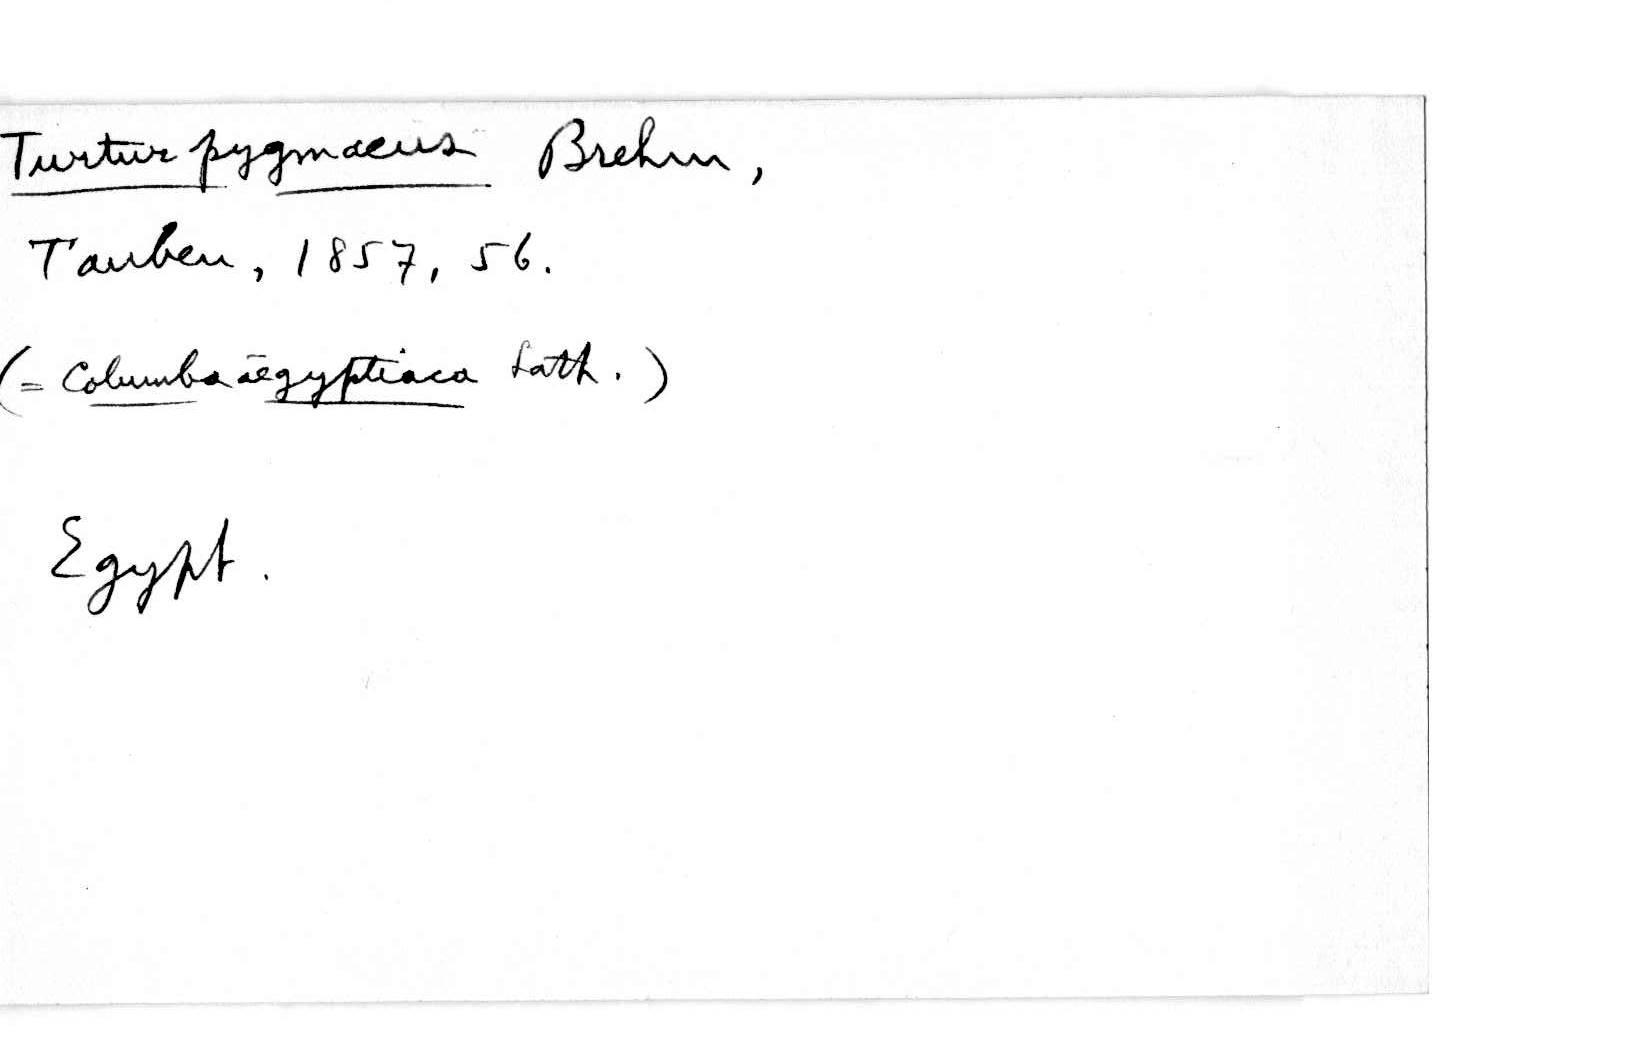 Turtur pygmaeus Brehm,
Tauben, 1857, 56.
(= Columba aegyptiaca Lath.)
Egypt.